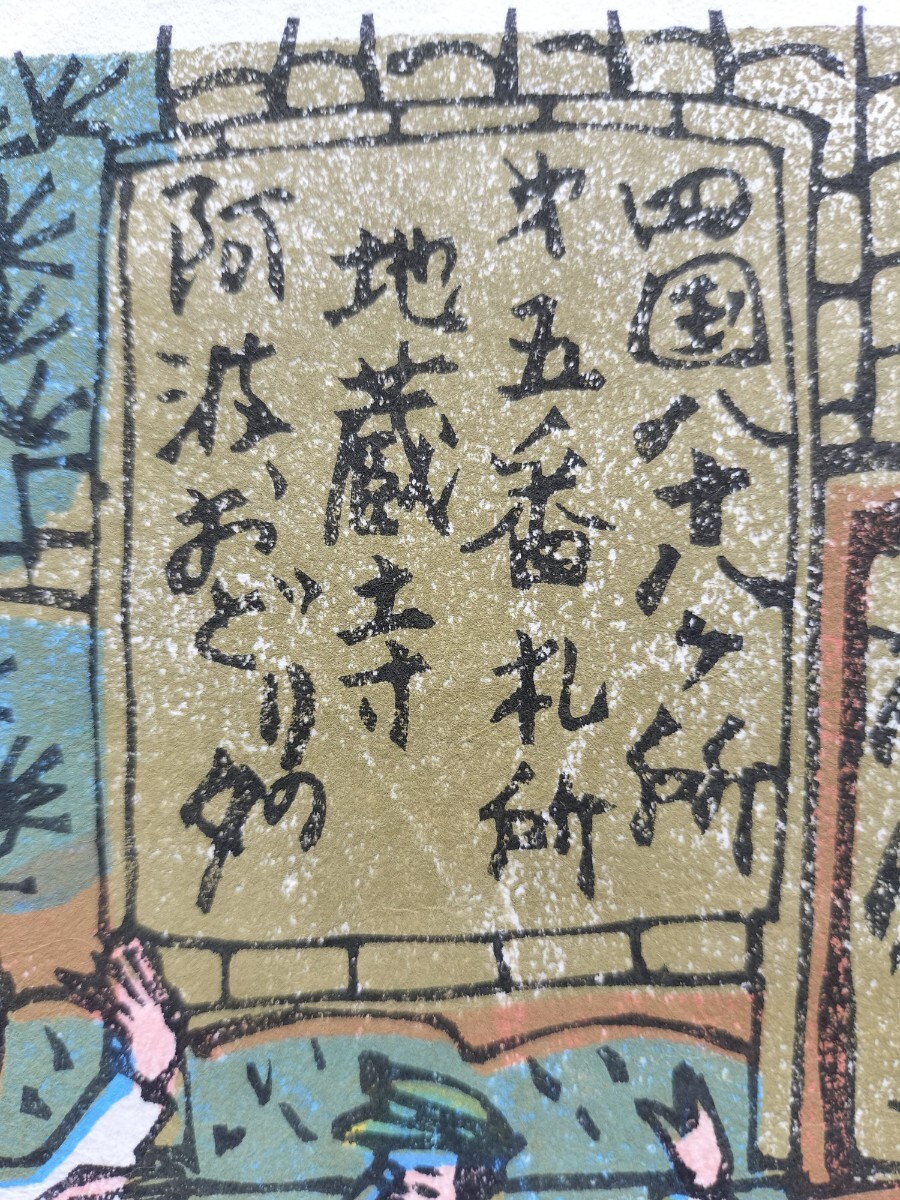 四国八十八ヶ所
第五番札所
地蔵寺
阿波おどりの